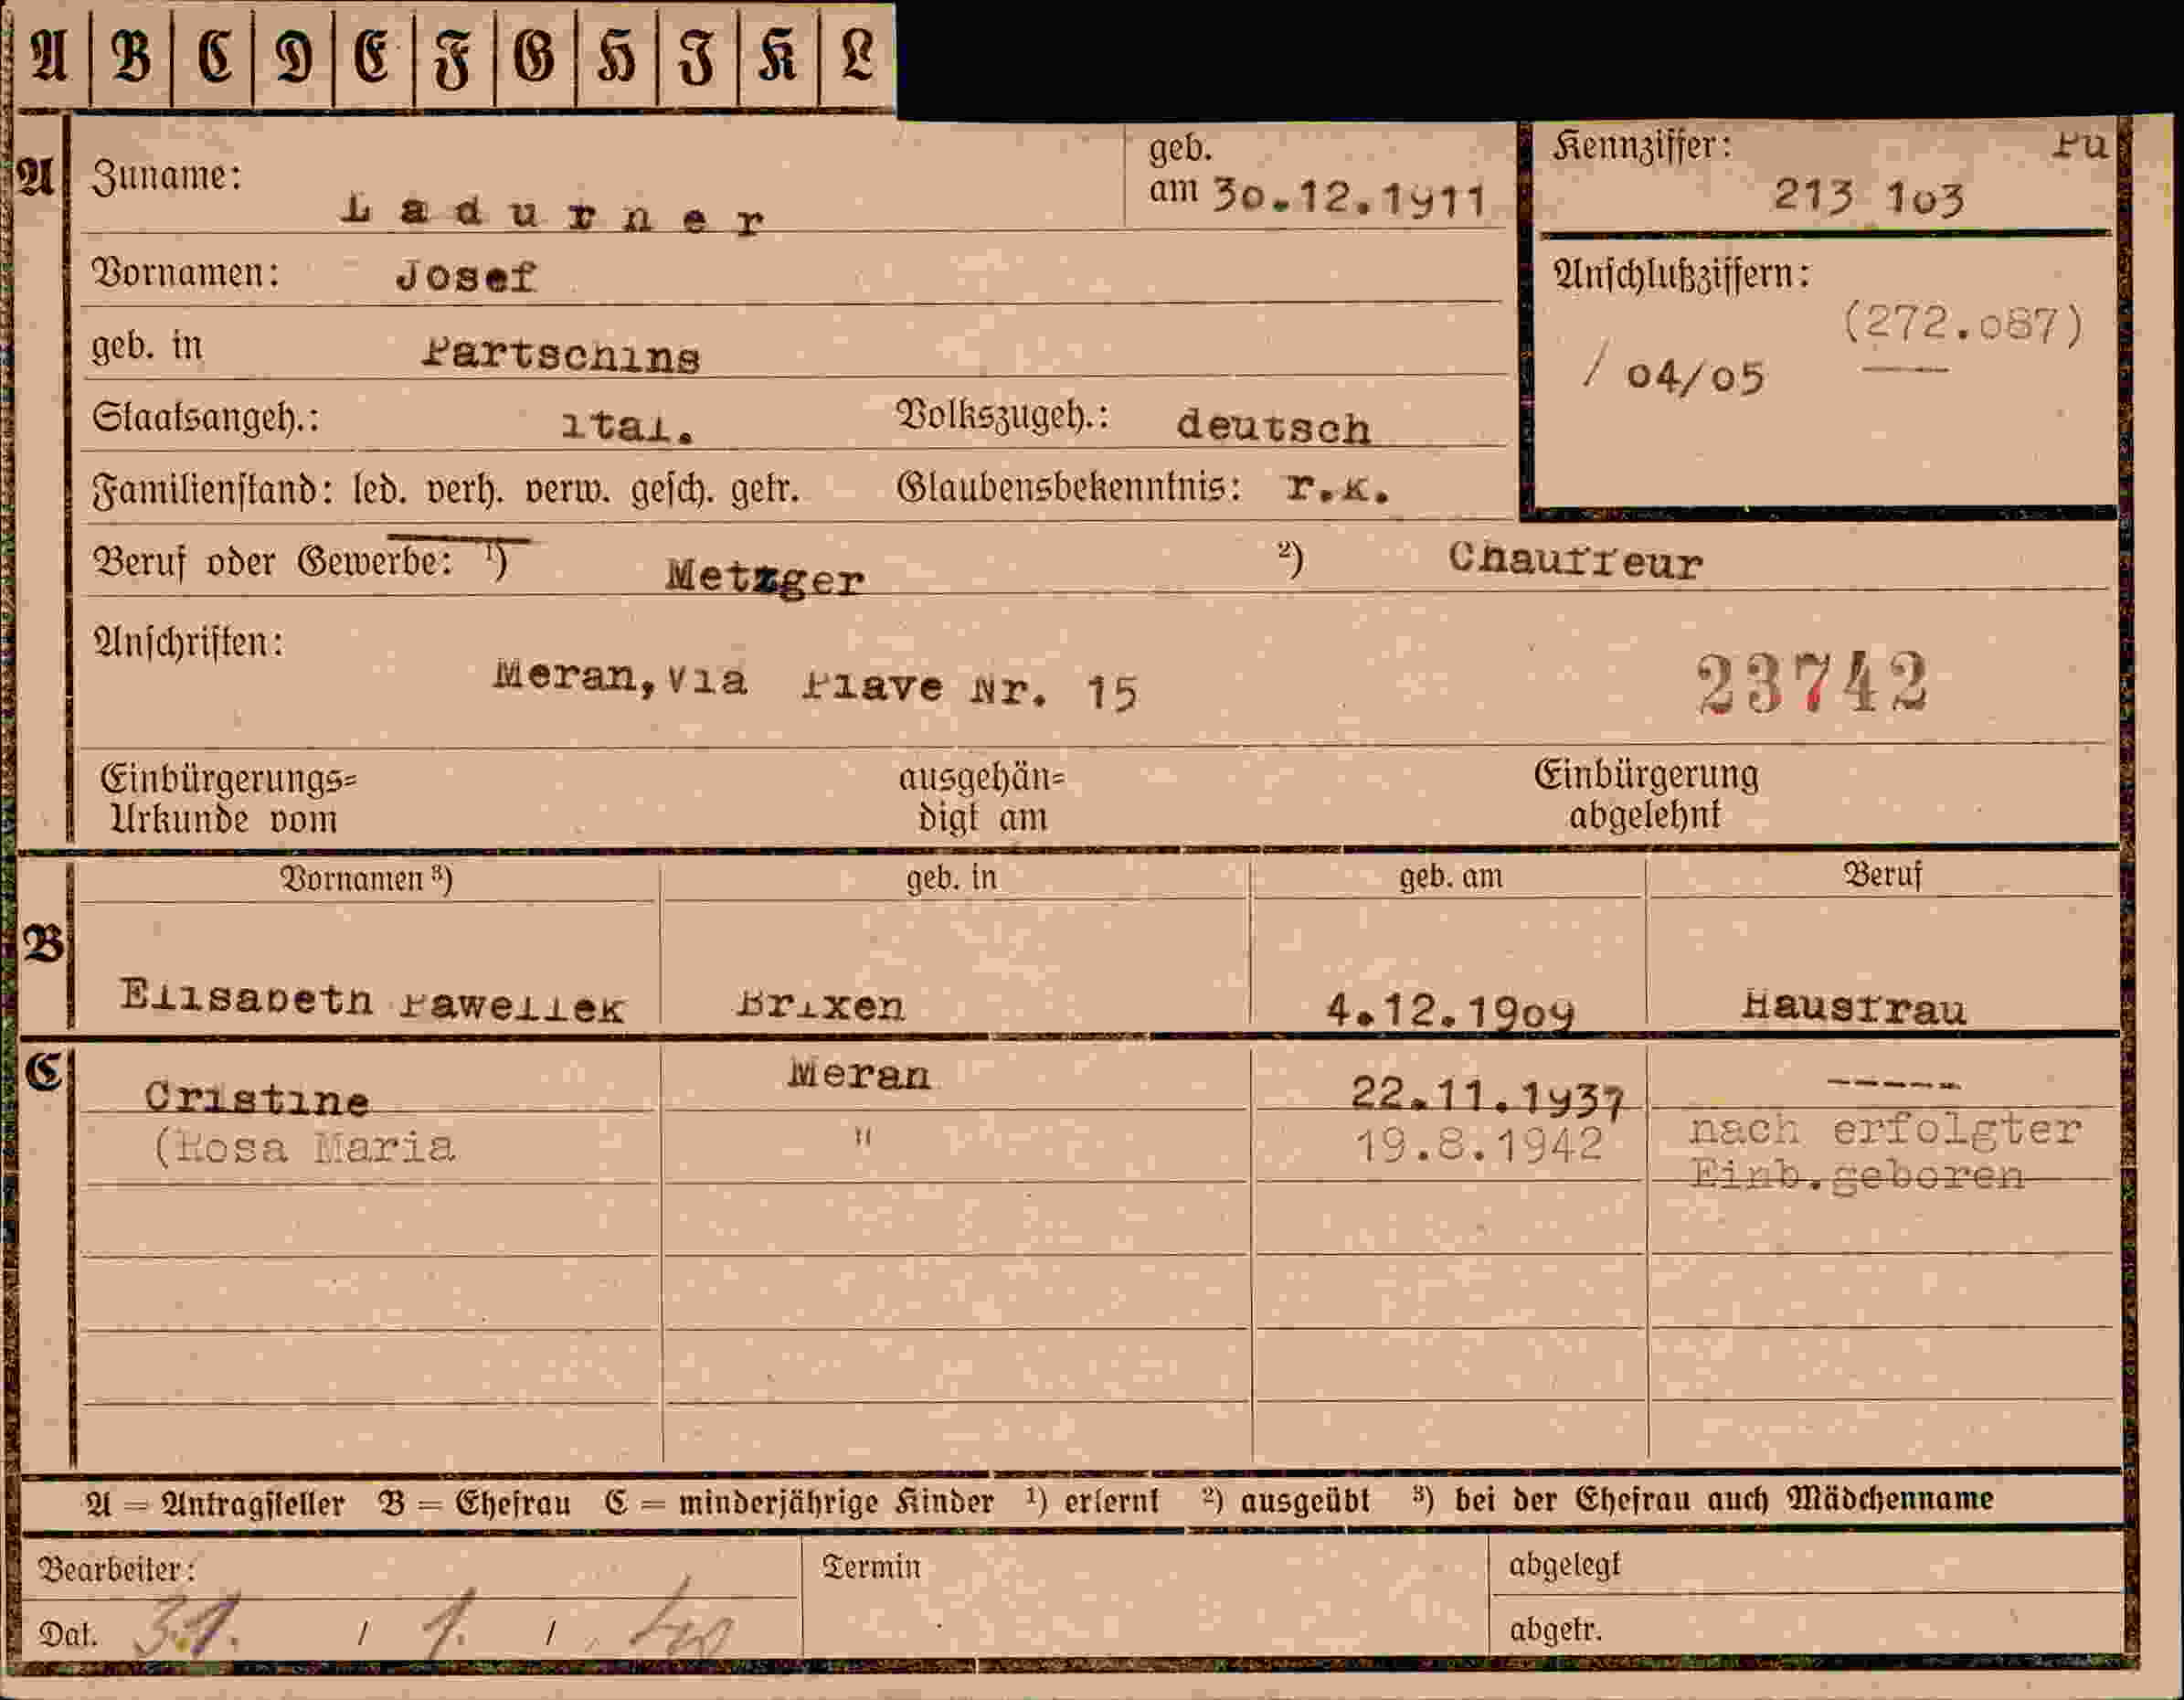 A B C D E F G H I K L
A Zuname: Ladurner geb. am 30.12.1911 Kennziffer: Pu
213 103
Vornamen: Josef Anschlußziffern:
(272.087)
geb. in Partschins / 04/05
Staatsangeh.: ital. Volkszugeh.: deutsch
Familienstand: led. verh. verw. gesch. getr. Glaubensbekenntnis: r.k.
Beruf oder Gewerbe: ¹) Metzger ²) Chauffeur
Anschriften:
Meran,via Piave Nr. 15 23742
Einbürgerungs= ausgehän= Einbürgerung
Urkunde vom digt am abgelehnt
Vornamen ³) geb. in geb. am Beruf
B
Elisabeth Pawellek Brixen 4.12.1909 Hausfrau
C Cristine Meran 22.11.1937 -----
(Rosa Maria " 19.8.1942 nach erfolgter
Einb.geboren
A = Antragsteller B = Ehefrau C = minderjährige Kinder ¹) erlernt ²) ausgeübt ³) bei der Ehefrau auch Mädchenname
Bearbeiter: Termin abgelegt
Dat. 31. / 1. / abgetr.